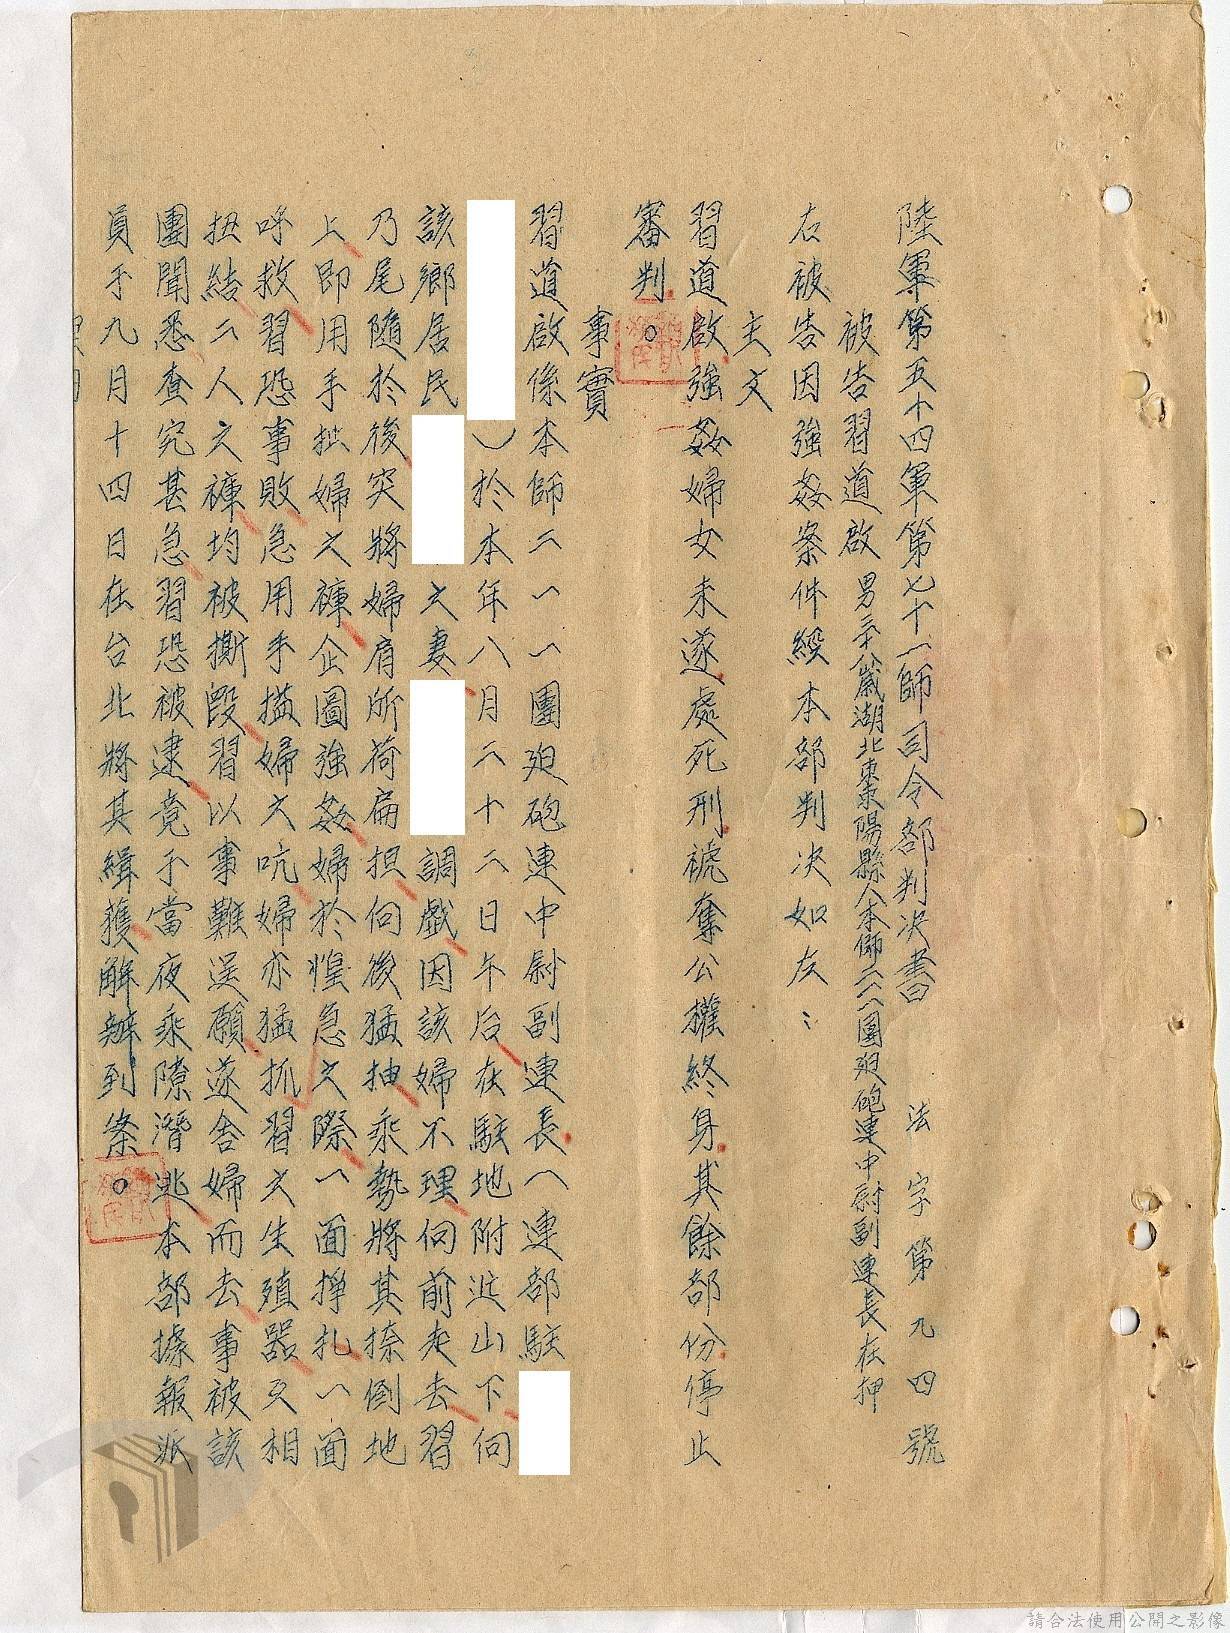 陸軍第五十四軍第七十一師司令部判決書　法字第九四號
被告習道啟男三十八歲湖北棗陽縣人本師二一一團廹砲連中尉副連長在押
右被告因強姦案件經本部判決如左：
主文
習道啟強姦婦女未遂處死刑褫奪公權終身其餘部份停止
審判。
事實
習道啟係本師二一一團廹砲連中尉副連長（連部駐
）於本年八月二十二日午后在駐地附近山下向
該鄉居民　之妻　調戲因該婦不理向前走去習
乃尾隨於後突將婦肩所荷扁担向後猛抽乘勢將其捺倒地
上即用手扯婦之褲企圖強姦婦於惶急之際一面掙扎一面
呼救習恐事敗急用手搤婦之吭婦亦猛抓習之生殖器互相
扭結二人之褲均被撕毀習以事難逞願遂舍婦而去事被該
團聞悉查究甚急習恐被逮竟于當夜乘隙潛逃本部據報派
員于九月十四日在台北將其緝獲解辦到案。
理由
請合法使用公開之影像